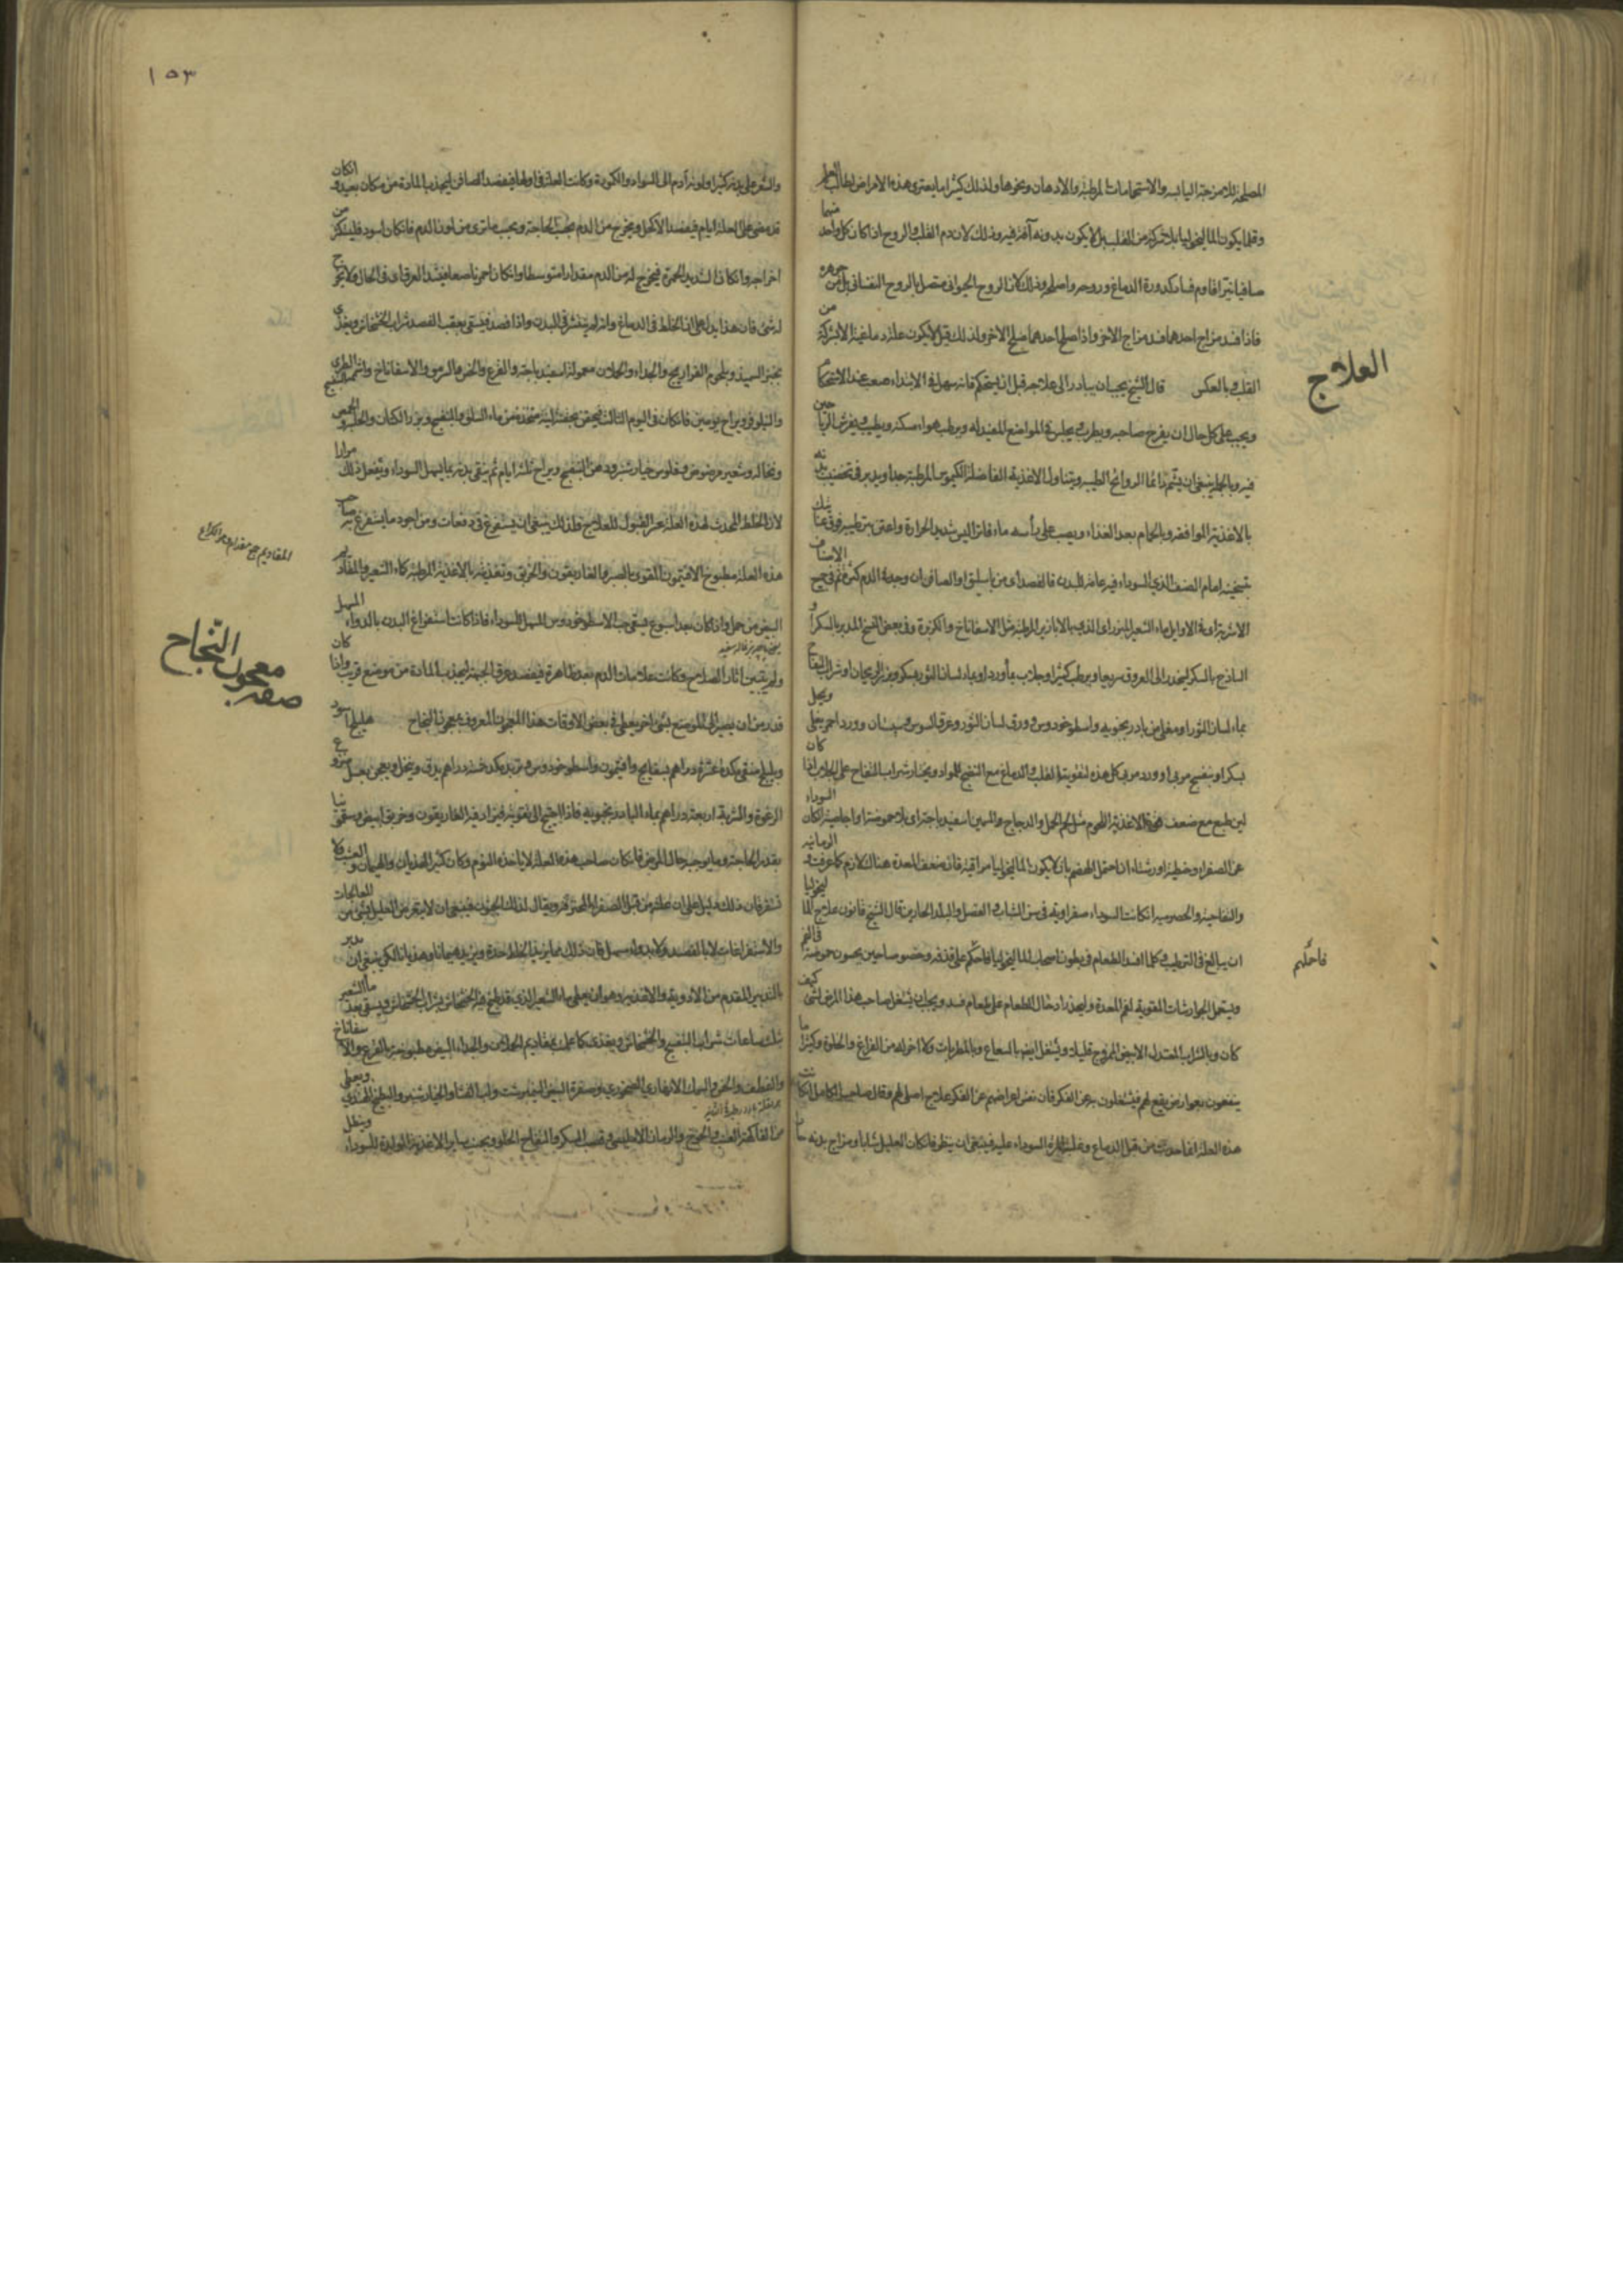 المصلحة للامزجة اليابسة والاستحمامات المرطبة والادهان ونحوها ولذلك كثيرا ما يعترى هذه الامراض
وقلما يكون الماليخوليا بلا شركة من القلب بل لا يكون بدونه آفة فيه وذلك لان دم القلب والروح ان كان كل واحد منهما
صافيا نيرا قاوم فساد كدورة الدماغ وروحه واصلحه وذلك لان الروح الحيوانى متصل بالروح النفسانى بل من جوهره
فاذا فسد مزاج احدهما فسد مزاج الاخر واذا صلح احدهما صلح الاخر ولذلك قيل لا يكون علة دماغية الا بشركة من
القلب وبالعكس قال الشيخ يجب ان يبادر الى علاجه قبل ان يستحكم فانه سهل فى الابتداء صعب عند الاستحكام
العلاج
ويجب على كل حال ان يفرح صاحبه ويطرب ويجلس فى المواضع المعتدلة ويرطب هواء مسكنه ويطيب بفرش الرياحين
فيه وبالجملة ينبغى ان يشم دائما الروائح الطيبة ويتناول الاغذية الفاضلة الكيموس المرطبة جدا ويدبر فى تخصيب بدنه
بالاغذية الموافقة وبالحمام بعد الغذاء ويصب على رأسه ماء فاتر ليس شديد الحرارة
الصنف الذى السوداء فيه عامة للبدن فالفصد اى من باسليق او الصافن ان وجد الدم كثيرا ثم
الاشربة اى الاوايل ماء الشعير المبزر اى الذى بالابازير المرطبة مثل الاسفاناخ والكزبرة وفى بعض النسخ المدبر بالسكر او
الساذج بالسكر لينحدر الى العروق سريعا ويرطب كثيرا وجلاب بماء ورد او بماء لسان الثور بسكر وبزر الريحان او شراب التفاح
بماء لسان الثور او مغلى من بادرنجبويه واسطوخودوس وورق لسان الثور وعرق السوس وسپستان وورد احمر يغلى ويحلى
بسكر او بنفسج مربى او ورد مربى كل هذه لتقوية القلب والدماغ مع النضج للمواد ويختار شراب التفاح على الجلاب اذا كان
لين طبع مع ضعف الاغذية اللحوم مثل لحم الحمل والدجاج والسمين اسفيدباجة اى بلا حموضة او اجاصية ان كان السوداء
عن الصفراء وحنطية او رشتاء ان احتمل الهضم بان لا يكون الماليخوليا مراقية فان ضعف المعدة هناك لازم كما عرفت والرمانيه
والتفاحية والحصرميه ان كانت السوداء صفراوية فى سن الشباب والفصل والبلد الحارين قال الشيخ قانون علاج الماليخوليا
ان يبالغ فى الترطيب كلما افسد الطعام فى بطون اصحاب الماليخوليا فاحملهم على قذفه وخصوصا حين يحسون حموضة فى الفم
فاحملهم
ويستعمل الجوارشات المقوية لفم المعدة وليحذر ادخال الطعام على طعام فسد ويجب ان يشغل صاحب هذا المرض بشئ كيف
كان وبالشراب المعتدل الابيض الممزوج قليلا ويشغل ايضا بالسماع وبالمطربات ولا اضر له من الفراغ والخلوة وكثيرا ما
ينتفعون بعوارض يقع لهم فيشغلون به عن الفكر فان نفس اعراضهم عن الفكر علاج اصلى لهم وقال صاحب الكامل ان كانت
هذه العلة انما حدثت من قبل الدماغ وغلبة المرة السوداء عليه فينبغى ان ينظر فان كان العليل شابا ومزاج بدنه حارا
١٥٣
والشعر على بدنه كثيرا ولونه آدم الى السواد والكمودة وكانت العلة فى اولها فيفصد الصافن ليجذب المادة من مكان بعيد وان كان
قد مضى على العلة ايام فيفصد الاكحل ويخرج من الدم بحسب الحاجة وبحسب ما ترى من لون الدم فان كان اسود فليكثر من
اخراجه وان كان الشديد الحمرة فيخرج له من الدم مقدارا متوسطا وان كان احمر ناصعا فيشد العرق اى فى الحال ولا يخرج
له شئ فان هذا يدل على ان الخلط فى الدماغ وانه لم ينتشر فى البدن واذا فصد فيسقى بعقب الفصد شراب الخشخاش ويغذى
بخبز السميذ وبلحوم الفراريج والجداء والحملان معمولة اسفيدباجة والقرع والخس والسرمق والاسفاناخ
والنيلوفر ويراح يومين فان كان فى اليوم الثالث فيحقن بحقنة لينة متخذة من ماء السلق والبنفسج وبزر الكتان والحلبة
ونخالة وشعير مرضوض وفلوس خيارشنبر ودهن البنفسج ويراح ثلثة ايام ثم ينقى بدنه بما يسهل السوداء ويفعل ذلك مرارا
لان الخلط المحدث لهذه العلة عسر القبول للعلاج فلذلك ينبغى ان يستفرغ فى دفعات ومن اجود ما يستفرغ به صاحب
المقاديم جمع مقدام وهو الكراع
هذه العلة مطبوخ الافتيمون المقوى بالصبر والغاريقون والخربق وتغذيته بالاغذية المرطبة كماء الشعير والمقاديم
البيض من حمل واذا كان بعد اسبوع فيسقى حب الاسطوخودوس المسهل للسوداء فاذا كانت استفراغ البدن بالدواء المسهل
ولم يتبين اثار الصلاح وكانت علامات الدم بعد ظاهرة فيفصد عرق الجبهة ليجذب المادة من موضع قريب واذا كان
معجون النجاح
صفته
قدر من ان يصير الى الموضع بشئ اخر يعطى فى بعض الاوقات هذا المعجون المعروف بمعجون النجاح هليلج اسود
وبليلج منقى مكد عشرة دراهم بسفايج وافتيمون واسطوخودوس وتربد مكد خمسة دراهم يدق وينخل ويعجن بعسل منزوع
الرغوة والشربة اربعة دراهم بماء البادرنجبويه فاذا احتيج الى تقويته فيزاد فيه الغاريقون وخربق ابيض وسقمونيا
بقدر الحاجة وما يوجبه حال المريض فان كان صاحب هذه العلة لا ياخذه النوم وكان كثير الهذيان والهيمان والعبث ولا
تستقر فان ذلك دليل على ان علته من قبل الصفراء المحترقة ويقال لذلك الجنون فينبغى ان لا يتعرض العليل بشئ من المعالجات
والاستفراغات لا بالفصد ولا بدواء مسهل فان ذلك مما يزيد الخلط حدة ويزيد هيمانا وهذيانا لكن ينبغى ان يدبر
بالتدبير المقدم من الادوية والاغذية وهو ان يعطى ماء الشعير الذى قد طبخ فيه الخشخاش بشراب الخشخاش ويسقى بعد ماء الشعير
بثلث ساعات شراب البنفسج والخشخاش ويغذى كما علمت بمقاديم الحملان والجداء البيض مطبوخة بالقرع والاسفاناخ
والقطف والخس والسمك الصخورى وصفرة البيض النيمبرشت ولب القثاء والخيار شنبر والبطيخ الهندى ويعطى
من الفاكهة العنب والخوخ والرمان الامليسى وقصب السكر والتفاح الحلو ويجنب ساير الاغذية المولدة للسوداء